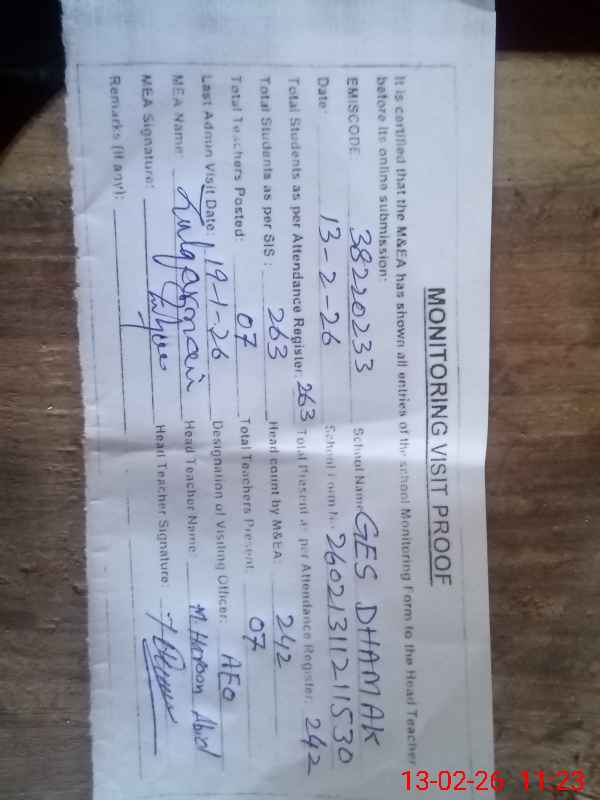 MONITORING VISIT PROOF
It is certified that the M&EA has shown all entries of the school Monitoring Form to the Head Teacher
before its online submission:
EMISCODE 38220233 School Name GES DHAMAK
Date: 13-2-26 School Form No. 260213112111530
Total Students as per Attendance Register: 263 Total Present as per Attendance Register: 242
Total Students as per SIS: 263 Head count by M&EA: 242
Total Teachers Posted: 07 Total Teachers Present: 07
Last Admin Visit Date: 19-1-26 Designation of Visiting Officer: AEO
MEA Name: Zulqarnain Head Teacher Name: M. Haroon Abid
MEA Signature: Head Teacher Signature:
Remarks (if any):
13-02-26 11:23